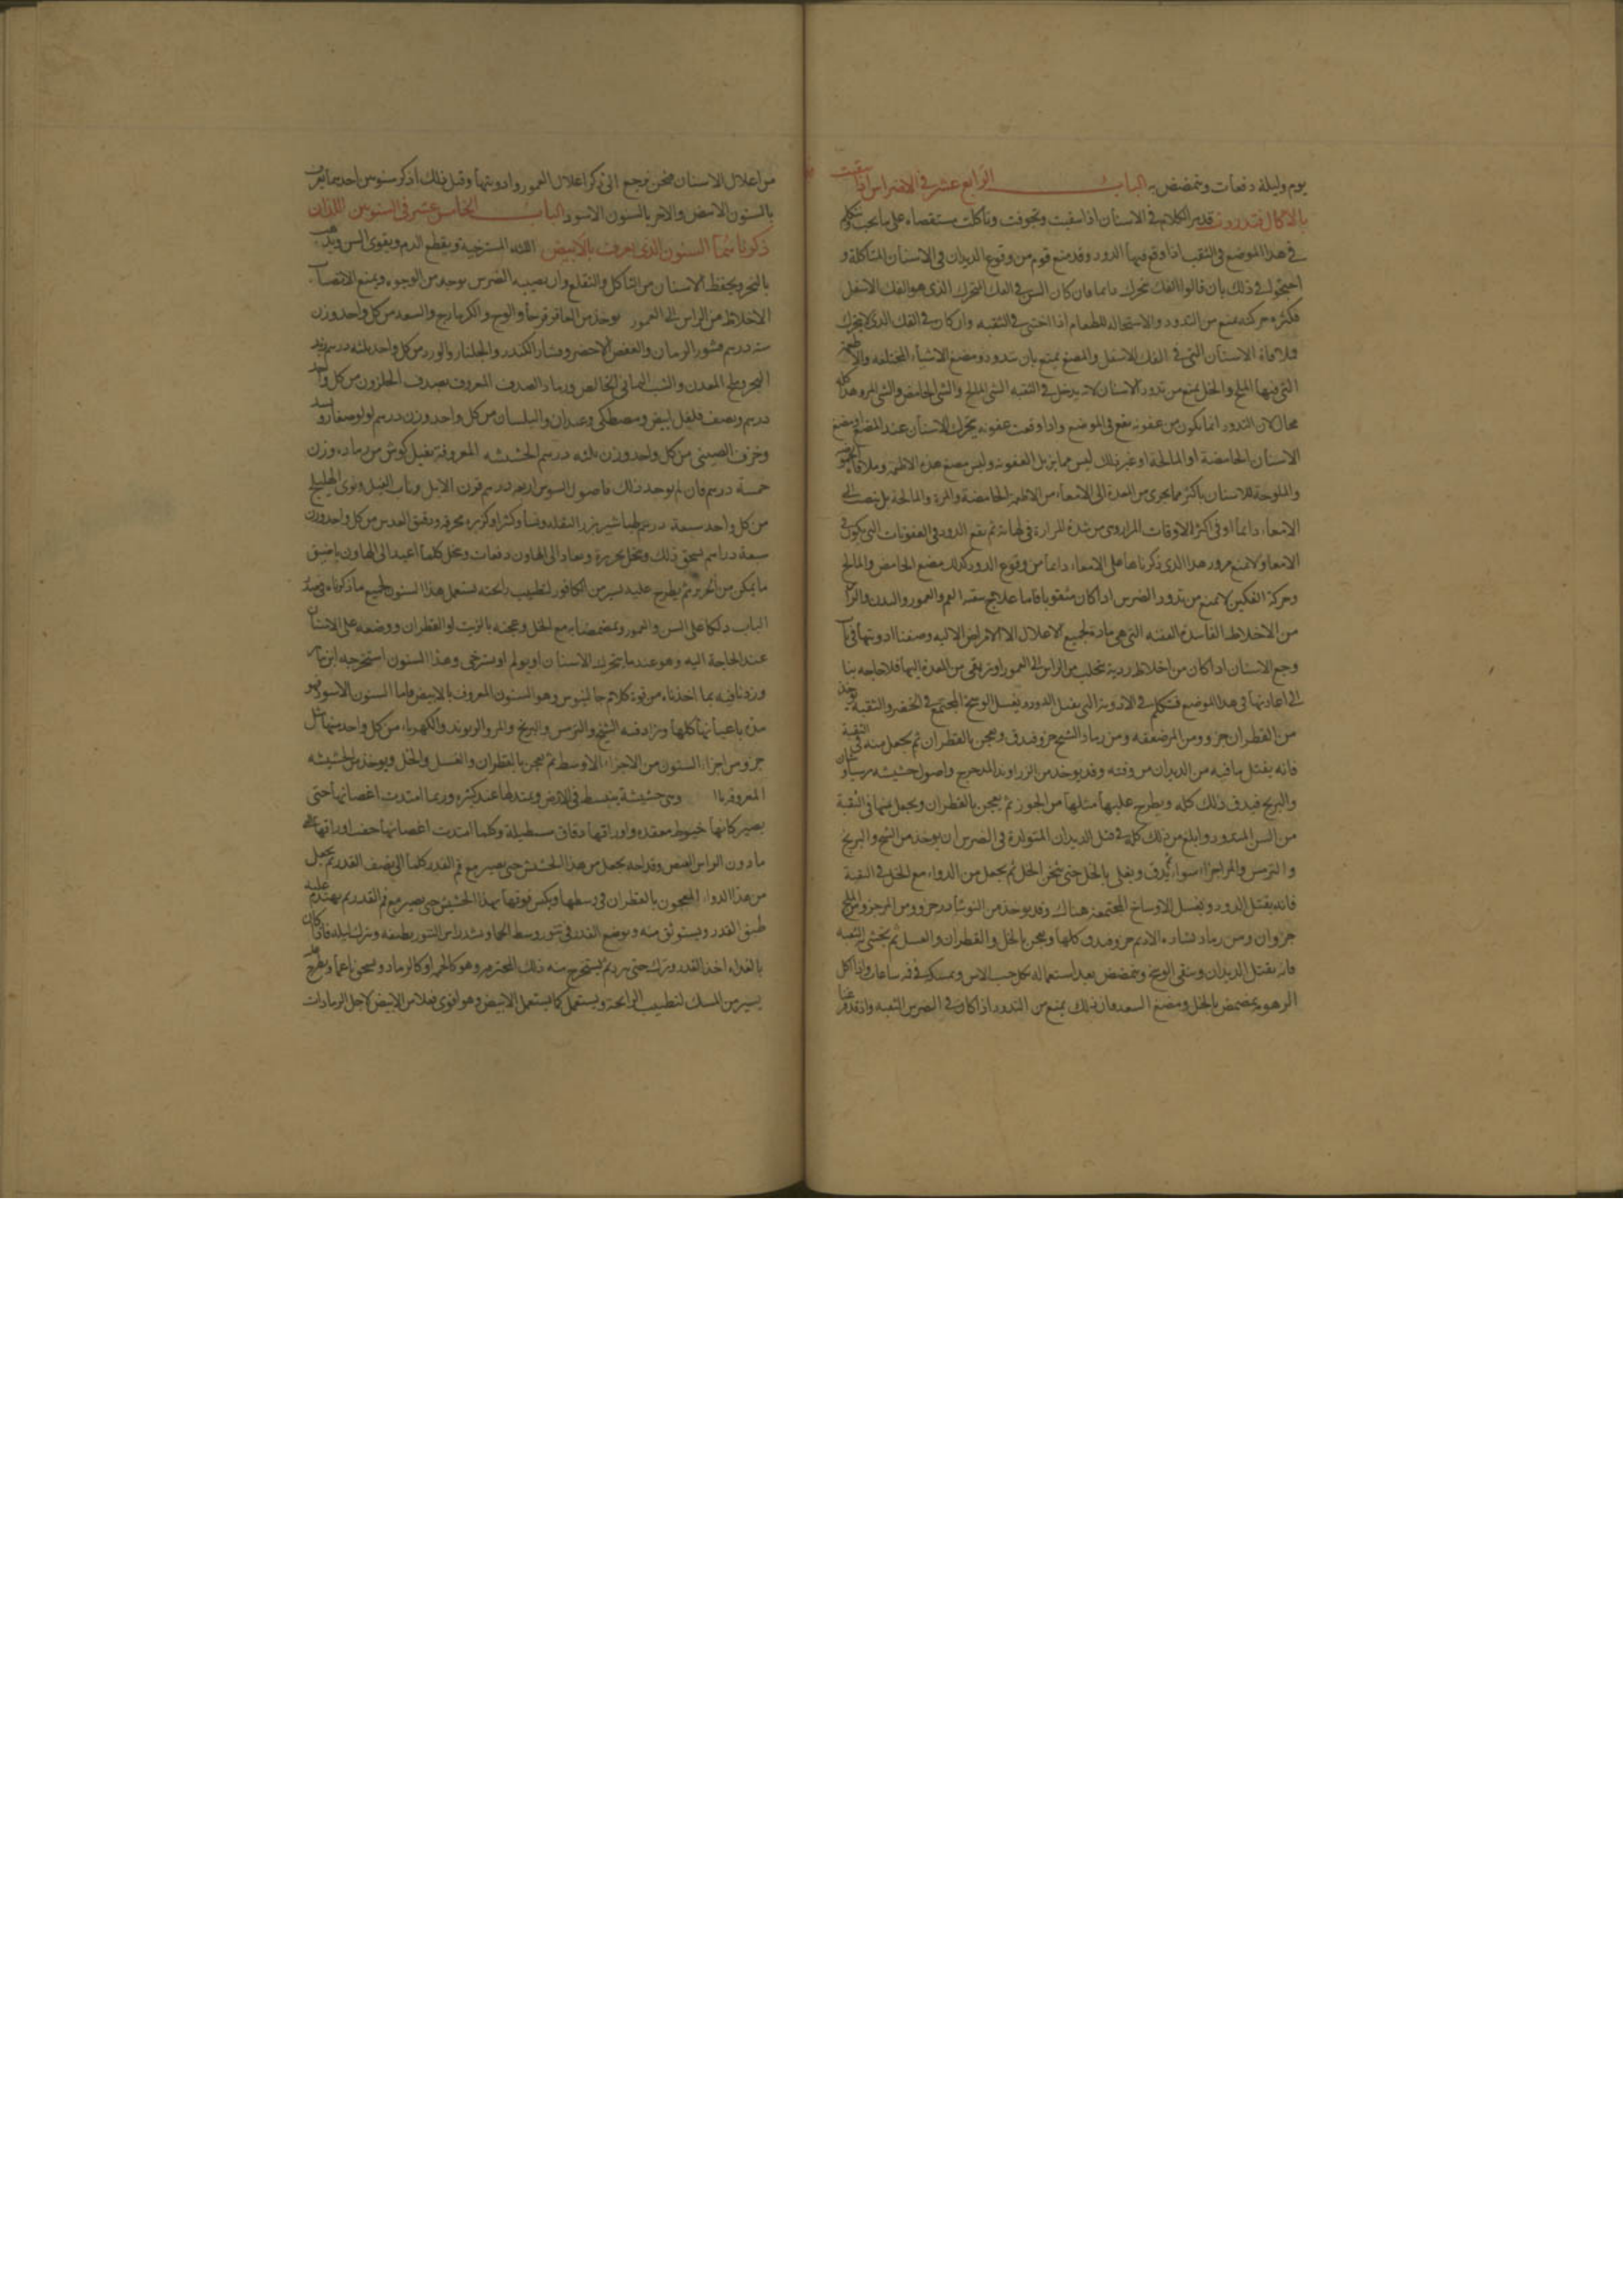 يوم وليلة دفعات ويتمضمض به الباب الرابع عشر في الاضراس اذا سقبت
بالاكال فتدودت قد مر الكلام في الاسنان اذا سقبت وتجوفت وتاكلت مستقصاء على ما يجب ونتكلم
في هذا الموضع في الثقب اذا وقع فيها الدود وقد منع قوم من وقوع الديدان في الاسنان المتاكلة و
احتجوا في ذلك بان قالوا الفك يتحرك دايما فان كان السن في الفك المتحرك الذي هو الفك الاسفل
فكثرة حركته يمنع من التدود والاستحالة للطعام اذا اختبى في الثقبه وان كان في الفك الذي لا يتحرك
فملاقاة الاسنان التي في الفك الاسفل والمضغ يمنع بان تدود ومضغ الاشياء المختلفه والاطعمة
التي فيها الملح والخل يمنع من تدود الاسنان لانه يدخل في الثقبه الشي المالح والشي الحامض والشي المر وهذا كله
محال لان التدود انما يكون من عفونه تقع في الموضع واذا وقعت عفونه يتحرك الاسنان عند المضغ ومضغ
الاسنان الحامضة او المالحة او غير ذلك ليس مما يزيل العفونه وليس مضغ هذه الاطعمه وملاقاة الحموضة
والملوحة للاسنان باكثر مما يجري من المعدة الى الامعاء من الاطعمه الحامضة والمرة والمالحة بل ينصب الى
الامعاء دائما او في اكثر الاوقات المرار وهي من شدة المرارة في نهاية ثم يقع الدود في العفونات التي يكون في
الامعا ولا يمنع مرور هذا الذي ذكرناها على الامعاء دايما من وقوع الدود كذلك مضغ الحامض والمالح
وحركة الفكين لا يمنع من تدود الضرس اذا كان مثقوبا فاما علاج تنقية الفم والعمور والبدن والراس
من الاخلاط الفاسدة العفنه التي هي مادة لجميع الاعلال الا الامراض الاليه وصفنا ادويتها في باب
وجع الاسنان اذا كان من اخلاط رديه يتحلب من الراس الى العمور او يترقى من المعدة اليها فلا حاجه بنا
الى اعادتها في هذا الموضع فنتكلم في الادوية التي يقتل الدود ويغسل الوسخ المجتمع في الحفر والثقبة يوخذ
من القطران جزو ومن المر ضعفه ومن رماد الشيح جزو فيدق ويعجن بالقطران ثم يجعل منه في الثقبة
فانه يقتل ما فيه من الديدان من وقته وقد يوخذ من الزراوند المدحرج واصول حشيشه
والبرنج فيدق ذلك كله ويطرح عليها مثلها من الجوز ثم يعجن بالقطران ويجعل منها في الثقبة
من السن المتدود وابلغ من ذلك كله في قتل الديدان المتولدة في الضرس ان يوخذ من الشيح والبرنج
و الترمس والمر اجزاء سواء يدق ويغلى بالخل حتى يثخن الخل ثم يجعل من الدواء مع الخل في الثقبة
فانه يقتل الدود ويغسل الاوساخ المجتمعة هناك وقد يوخذ من النوشادر جزو ومن المر جزو ومن الملح
جزوان ومن رماد نشاره الاديم جزو فيدق كلها ويعجن بالخل والقطران والعسل ثم يحشى الثقبه
فانه يقتل الديدان وينقي الوسخ ويتمضمض بعد استعماله بخل حب الاس ويمسكه في فيه ساعات واذا اكل
الزهومه يتمضمض بالخل ومضغ السعد فان ذلك يمنع من التدود اذا كان في الضرس الثقبه واذ قد فرغنا
من اعلال الاسنان فنحن نرجع الى ذكر اعلال العمور وادويتها وقبل ذلك اذكر سنونين احديهما يعرف
بالسنون الابيض والاخر بالسنون الاسود الباب الخامس عشر في السنونين اللذان
ذكرناهما السنون الذي يعرف بالابيض اللثه المسترخية ويقطع الدم ويقوي السن ويذهب
بالبخر ويحفظ الاسنان من التاكل والتقلع وان يصيبه الضرس بوجه من الوجوه ويمنع الانصباب
الاخلاط من الراس الى العمور يوخذ من العاقرقرحا والوج والكزمازج والسعد من كل واحد وزن
سته درهم قشور الرمان والعفص الاخضر وقشار الكندر والجلنار والورد من كل واحد ثلثه درهم زبد
البحر وملح المعدن والشب اليماني الخالص ورماد الصدف المعروف بصدف الحلزون من كل واحد
درهم ونصف فلفل ابيض ومصطكي وعيدان والبلسان من كل واحد وزن درهم لولو صغار و
وخزف الصيني من كل واحد وزن ثلثه درهم الحشيشه المعروفة من رماده وزن
خمسة درهم فان لم يوجد ذلك فاصول السوس اربعه درهم قرن الايل وناب الفيل ونوى الهليلج
من كل واحد سبعة درهم طباشير بزر البقله ونشا وكثيرا وكزبره محرقه ودقيق العدس من كل واحد وزن
سبعة دراهم يسحق ذلك وينخل بحريرة ويعاد الى الهاون دفعات وينخل كلما اعيد الى الهاون باضيق
ما يمكن من الحرير ثم يطرح عليه يسير من الكافور لتطييب رائحته يستعمل هذا السنون لجميع ما ذكرناه في صدر
الباب دلكا على السن والعمور وتمضمضا به مع الخل وعجنه بالزيت او القطران ووضعه على الاسنان
عند الحاجة اليه وهو عند ما يتحرك الاسنان او يولم او يسترخي وهذا السنون استخرجه ابن
وزدنا فيه بما اخذناه من قوة كلام جالينوس وهو السنون المعروف بالابيض فاما السنون الاسود فهو
هذه باعيانها كلها ويزاد فيه الشيح والترمس والبرنج والمر والريوند والكهرباء من كل واحد منها مثل
جزو من اجزاء السنون من الاجزاء الاوسط ثم يعجن بالقطران والعسل والخل ويوخذ من الحشيشه
المعروفة وهي حشيشة ينبسط في الارض ويمتد لها عند كثره وربما امتدت اغصانها حتى
يصير كانها خيوط معقده واوراقها دقاق مستطيلة وكلما امتدت اغصانها جف اوراقها على
ما دون الراس الغض وقد احه يجعل من هذا الحشيش حتى يصير مع فم القدر كلما الى نصف القدر ثم يجعل
من هذا الدواء المعجون بالقطران في وسطها ويكبس فوقها بهذا الحشيش حتى يصير مع فم القدر ثم يهندم عليه
طبق القدر ويستوثق منه ويوضع القدر في تنور وسط الحما ويشد راس التنور بطبقه ويترك ليله فاذا كان
بالغداه اخذ القدر ويترك حتى يبرد ثم يستخرج منه ذلك المحترم وهو كالحمم او كالرماد ويسحق ناعما ويطرح عليه
يسير من المسك لتطييب الرايحة ويستعمل كما يستعمل الابيض وهو اقوى فعلا من الابيض لاجل الرمادات